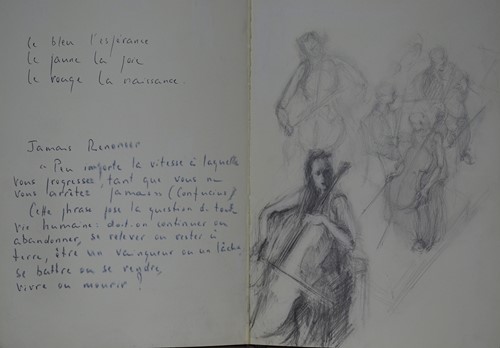 le bleu l'espérance
le jaune la joie
le rouge la naissance.
Jamais Renoncer
" Peu importe la vitesse à laquelle
vous progressez, tant que vous ne
vous arrêtez jamais" (Confucius)
Cette phrase pose la question de toute
vie humaine : doit-on continuer ou
abandonner, se relever ou rester à
terre, être un vainqueur ou un lâche,
se battre ou se rendre,
vivre ou mourir !